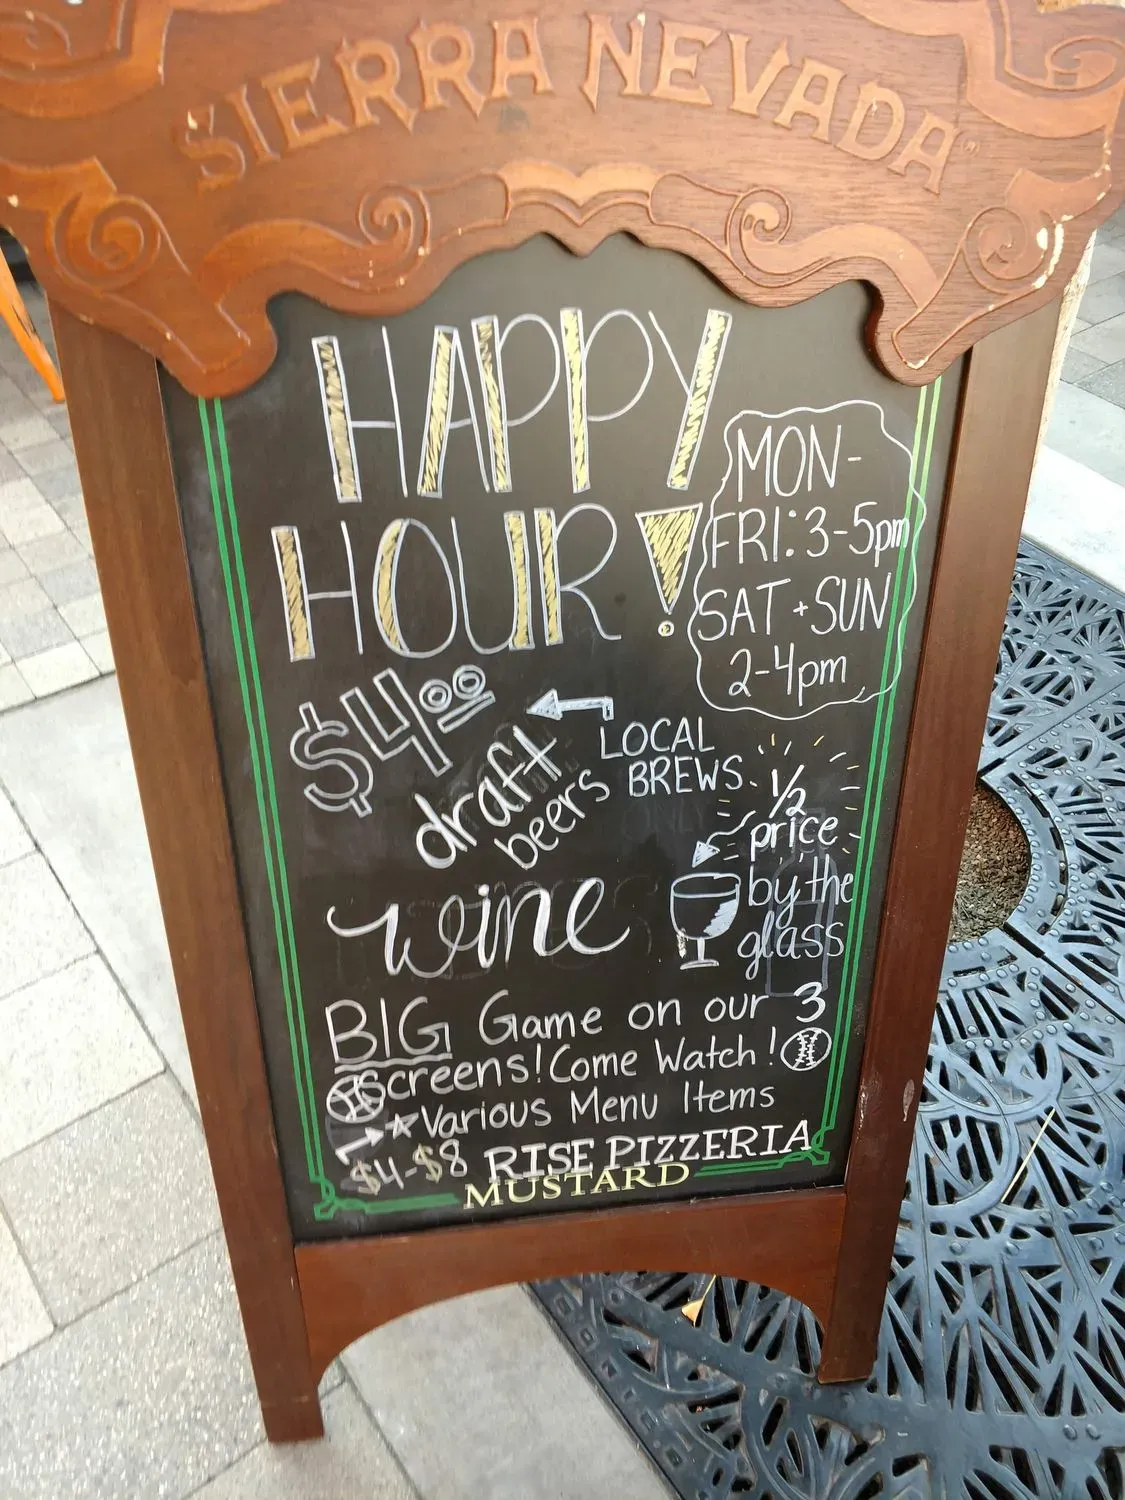 SIERRA NEVADA®
HAPPY
HOUR!
MON-
FRI: 3-5pm
SAT + SUN
2-4pm
$4.00
draft
beers
LOCAL
BREWS
1/2
price
by the
glass
wine
BIG Game on our 3
Screens! Come Watch!
Various Menu Items
$4-$8 RISE PIZZERIA
MUSTARD